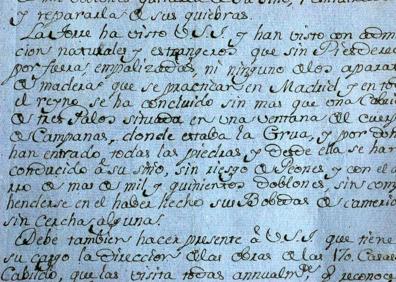 y repararla de sus quiebras.
La Torre ha visto V.S.I. y han visto con admi
cion naturales y estrangeros que sin
por fuera empalizadas, ni ninguno de los apara
de maderas que se practican en Madrid y en to
el reyno se ha concluido sin mas que una Cabri
de tres Palos situada en una ventana del cuerp
de Campanas, donde estaba la Grua, y por don
han entrado todas las piedras y desde ella se han
conducido a su sitio, sin riesgo de Peones y con el a
rro de mas de mil y quinientos doblones, sin com
henderse en el haber hecho sus Bobedas de
sin Cerchas algunas.
Debe tambien hacer presente a V.S.I. que tiene
su cargo la Direccion de las obras de las 170. Casas
Cabildo, que las visita todas annualmte. y reconoce